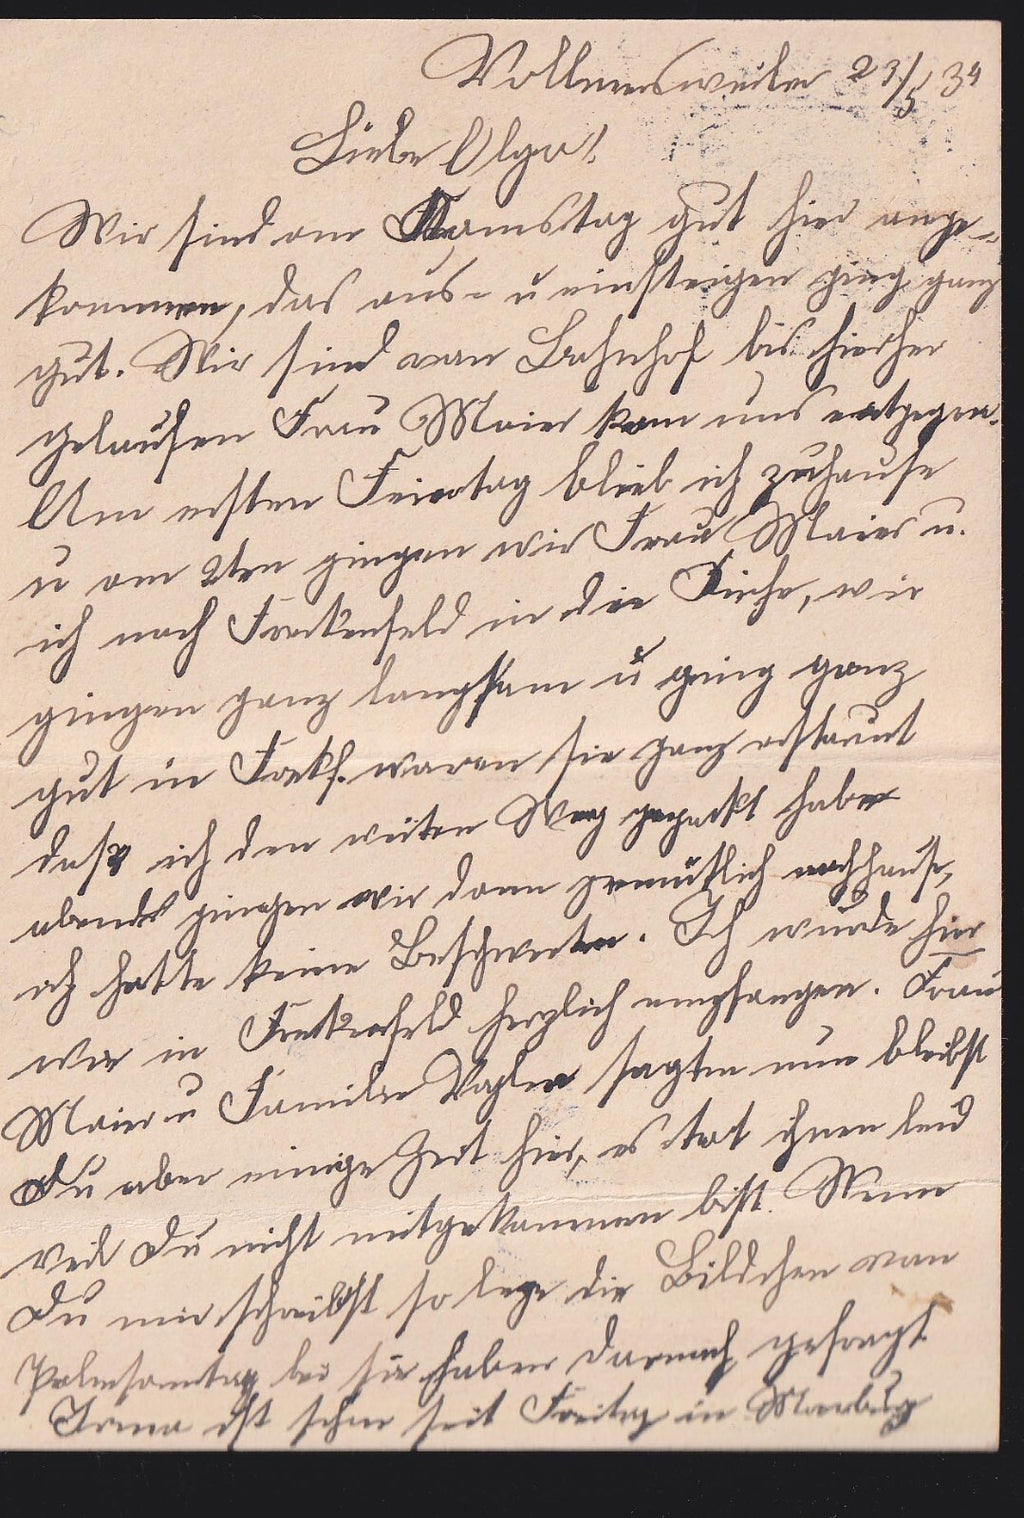 Vollmersweiler 23/5 34
Liebe Olga!
Wir sind am Samstag gut hier ange-
kommen, das aus- u einsteigen ging ganz
gut. Wir sind vom Bahnhof bis hierher
gelaufen Frau Maier kam uns entgegen.
Am ersten Feiertag blieb ich zuhause
u am 2ten gingen wir Frau Maier u.
ich nach Freckenfeld in die Kirche, wir
gingen ganz langsam u ging ganz
gut in Freckf. waren sie ganz erstaunt
daß ich den weiten Weg gepackt habe
abends gingen wir dann gemütlich nachhause,
ich hatte keine Beschwerden. Ich wurde hier
wie in Freckenfeld herzlich empfangen. Frau
Maier u Familie Vogler sagten nun bleibst
Du aber einige Zeit hier, es tat ihnen leid
weil Du nicht mitgekommen bist. Wenn
Du mir schreibst so lege die Bildchen von
Palmsonntag bei sie haben darnach gefragt
Irma ist schon seit Freitag in